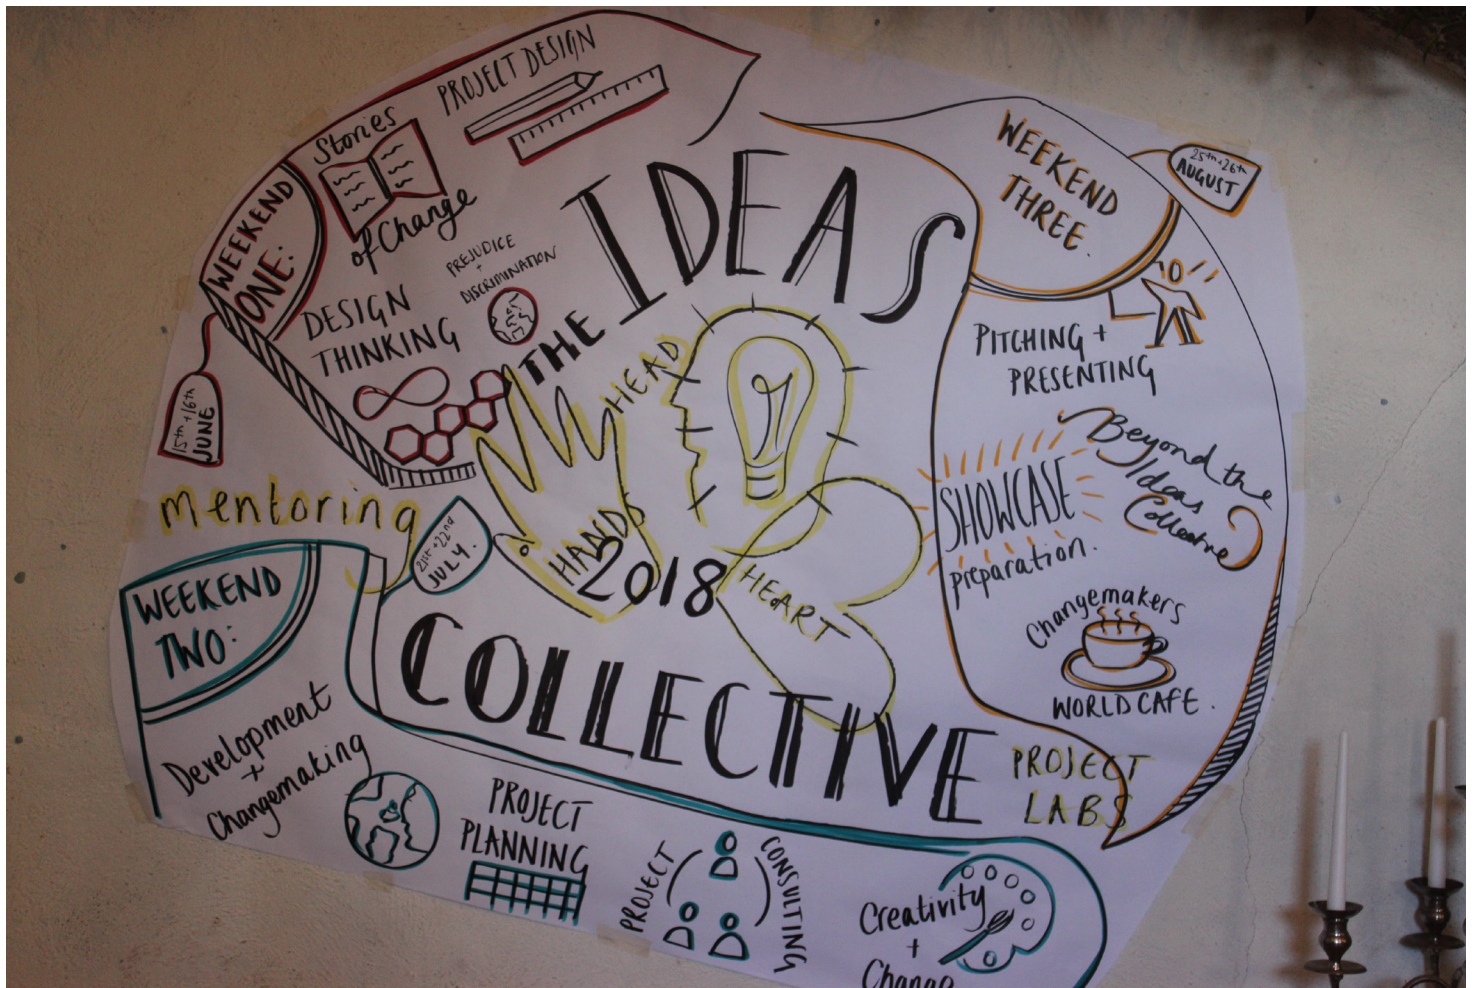 THE
IDEAS
COLLECTIVE
2018
HEAD
HANDS
HEART
WEEKEND
ONE:
15th + 16th
JUNE
Stories
of Change
PROJECT DESIGN
PREJUDICE
+
DISCRIMINATION
DESIGN
THINKING
mentoring
WEEKEND
TWO:
21st + 22nd
JULY.
Development
+
Changemaking
PROJECT
PLANNING
PROJECT
CONSULTING
Creativity
+
Change
WEEKEND
THREE.
25th + 26th
AUGUST
PITCHING +
PRESENTING
Beyond the
Ideas
Collective
SHOWCASE
preparation.
Changemakers
WORLD CAFE.
PROJECT
LABS